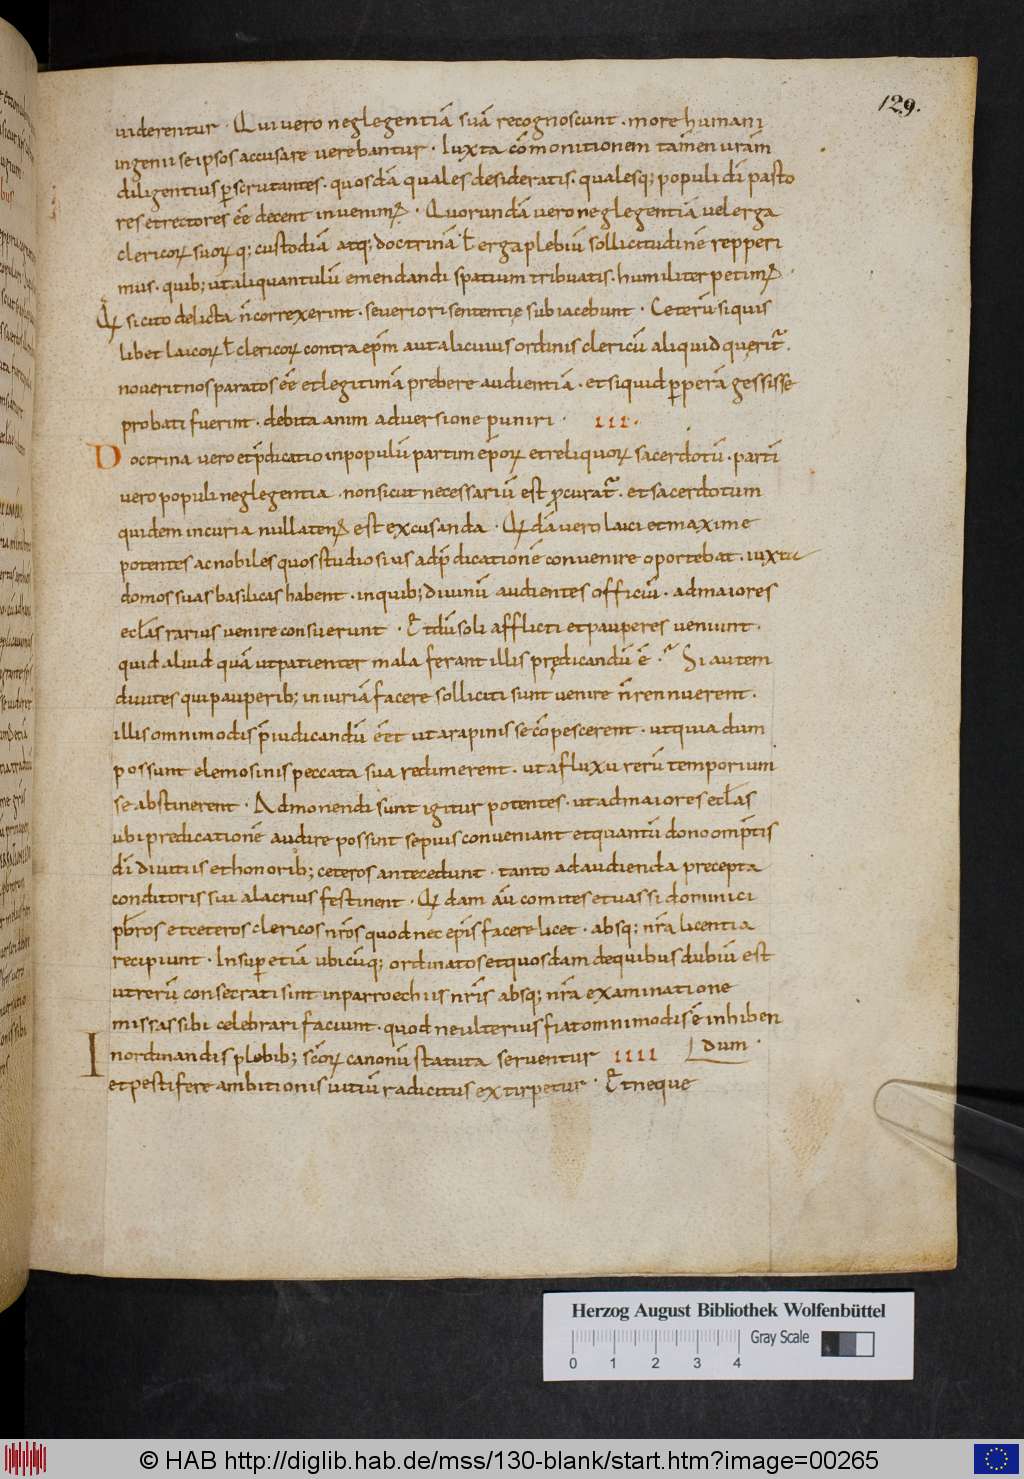 129.
viderentur · Qui vero neglegentiā suā recognoscunt · more humani
ingenii se ipsos accusare verebantur · Iuxta cōmonitionem tamen vrām
diligentius p̱scrutantes · quosdā quales desideratis · qualesq; populi dī pasto
res et rectores eē decent invenim᷒ · Quorundā vero neglegentiā vel erga
clericoꝝ suoꝝq; custodiā atq; doctrinā ł erga plebiū sollicitudinē repperi
mus · quib; ut aliquantulū emendandi spatium tribuatis · humiliter petim᷒ ·
Qꝝ si cito delicta n̄ correxerint · severiori sententię subiacebunt · Ceterū si quis
libet laicoꝝ ł clericoꝝ contra ep̄m aut alicuius ordinis clericū aliquid querit᷑ ·
noverit nos paratos eē et legitimā prebere audientiā · et siquid p̱perā gessisse
probati fuerint · debita animadversione puniri · III ·
Doctrina vero et p̄dicatio in populū partim ep̄oꝝ et reliquoꝝ sacerdotū · partī
vero populi neglegentia · non sicut necessariū est ꝓcurat᷑ · et sacerdotum
quidem incuria nullaten᷒ est excusanda · Qꝝdā vero laici et maxime
potentes ac nobiles quos studiosius ad p̄dicationē convenire oportebat · iuxta
domos suas basilicas habent · in quib; divinū audientes officiū · ad maiores
ecłas rarius venire consuerunt · Et dū soli afflicti et pauperes veniunt ·
quid aliud quā ut patienter mala ferant illis prędicandū ē · Si autem
divites qui pauperib; iniuriā facere solliciti sunt venire n̄ rennuerent ·
illis omnimodis p̄iudicandū eēt ut a rapinis se cōpescerent · utquia dum
possunt elemosinis peccata sua redimerent · ut a fluxu rerū temporium
se abstinerent · Admonendi sunt igitur potentes · ut ad maiores ecłas
ubi predicationē audire possint sepius conveniant et quantū dono omp̄tis
dī divitiis et honorib; ceteros antecedunt · tanto ad audienda precepta
conditoris sui alacrius festinent · Qꝝdam aū comites et vassi dominici
pƀros et ceteros clericos nr̄os quod nec ep̄is facere licet · absq; nr̄a licentia
recipiunt · Insup̱ etiā ubicūq; ordinatos et quosdam de quibus dubiū est
utrerū consecrati sint in parroechiis nr̄is absq; nr̄a examinatione
missas sibi celebrari faciunt · quod ne ulterius fiat omnimodis ē inhiben
dum ·
In ordinandis plebib; sc̄oꝝ canonū statuta serventur IIII
et pestifere ambitionis vitiū radicitus extirpetur · Et neque
Herzog August Bibliothek Wolfenbüttel
Gray Scale
0 1 2 3 4
© HAB http://diglib.hab.de/mss/130-blank/start.htm?image=00265